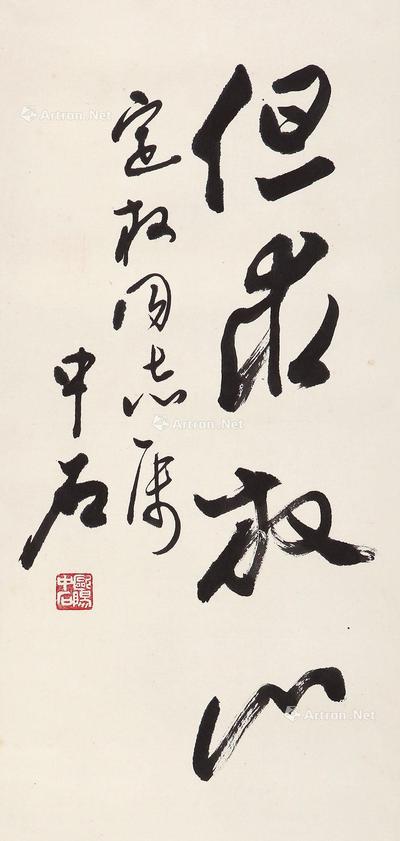 但求放心
同志属
中石
歐陽中石
Artron.Net
Artron.Net
Artron.Net